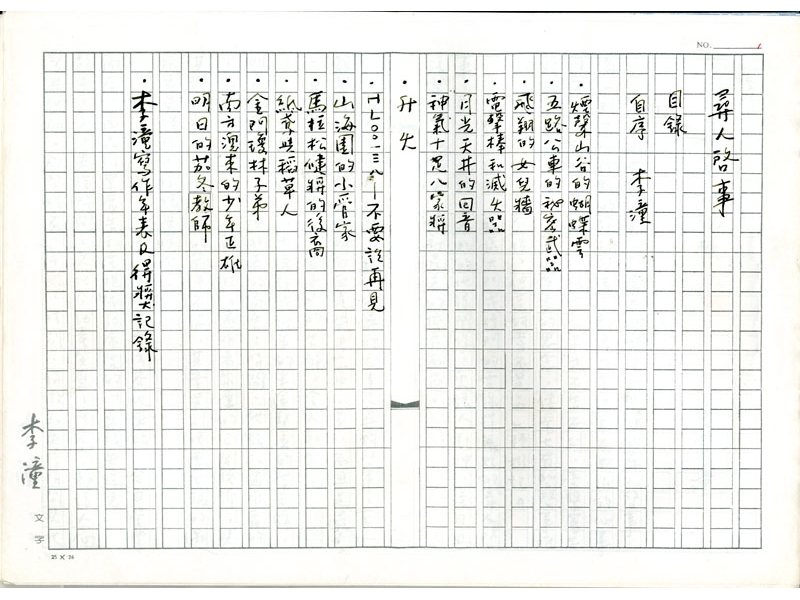 NO. 1
尋人啟事
目錄
自序 李潼
·煙聲山谷的蝴蝶雲
·五路公車的祕密武器
·飛翔的女兒牆
·電擊棒和滅火器
·月光天井的回音
·神氣十足八家將
·升火
·TL00一三八—不要說再見
·山海園的小管家
·馬拉松健將的後裔
·紙鳶與稻草人
·金門瓊林子弟
·南方澳來的少年正雄
·明日的茄冬教師
·李潼寫作年表及得獎記錄
李潼
文字
25×24